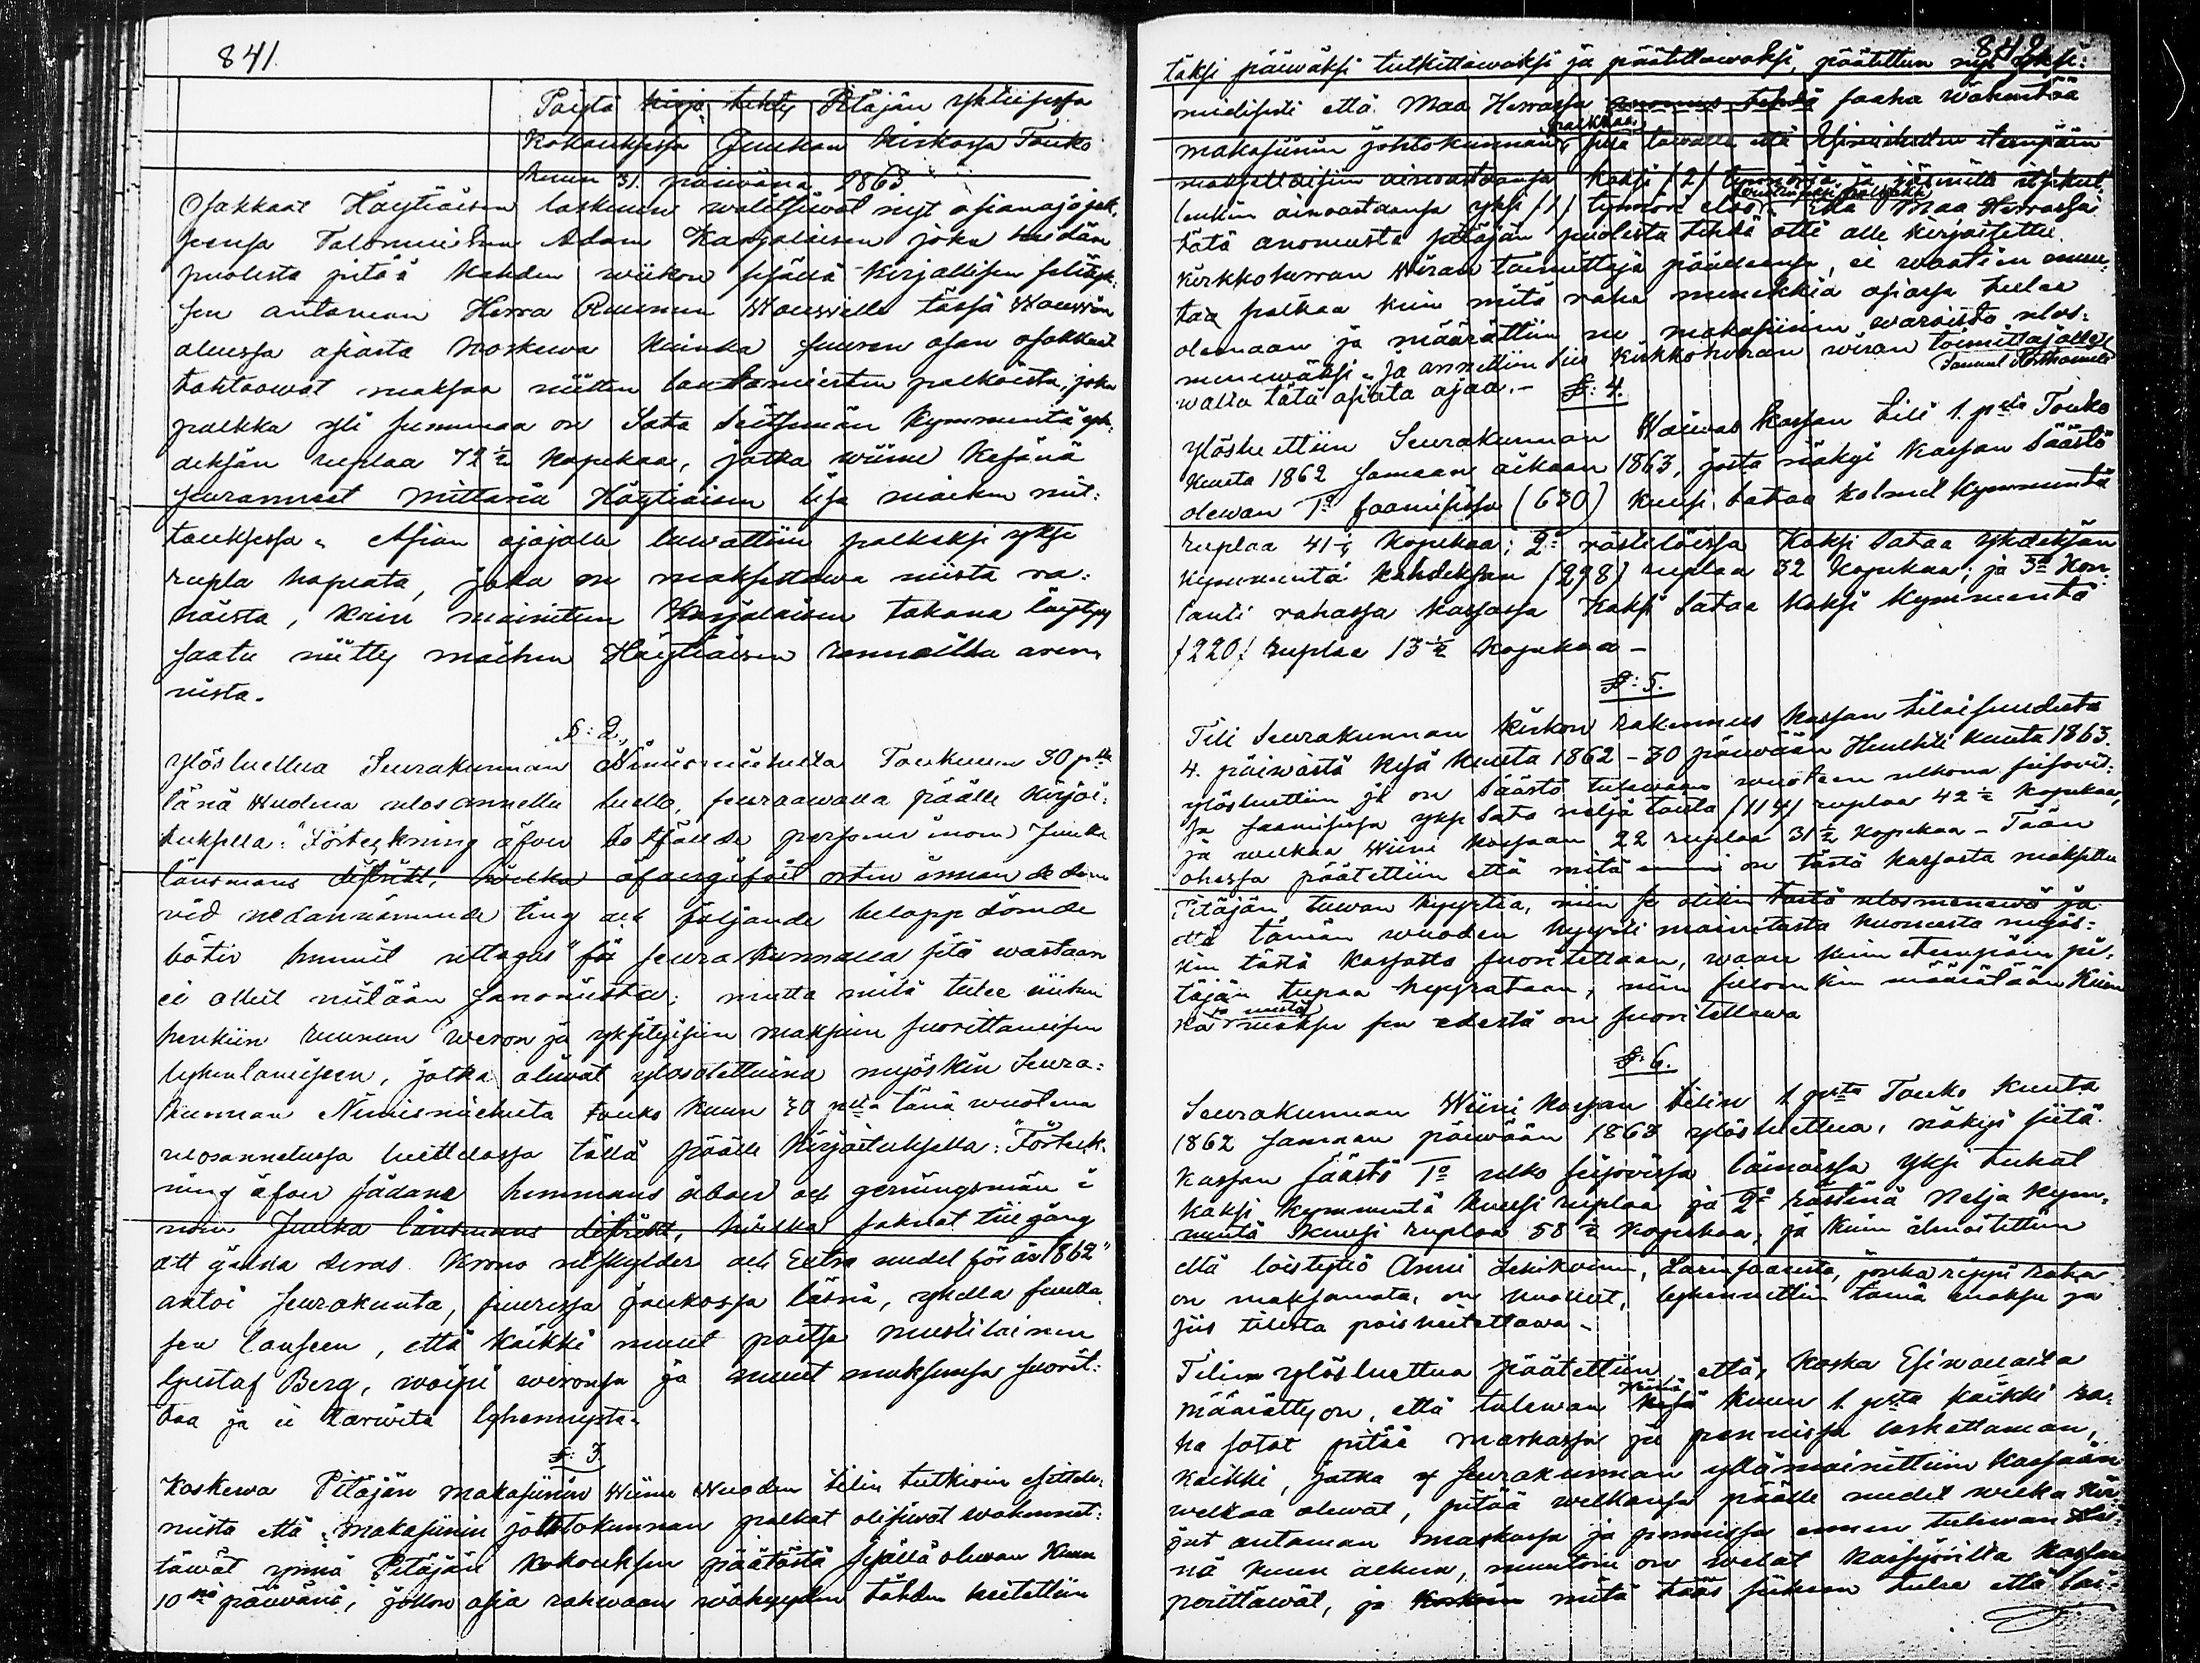 841.
Pöytä kirja tehty Pitäjän ykteisessa
Kokouksessa Juukan Kirkossa Touko
kuun 31. päiwänä 1863
Osakkaat Höytiäisen laskuun walitsiwat nyt asianajajak-
sensa Talonmiehen Adam Karjalaisen joka heidän
puolesta pitää kahden wiikon sisällä kirjallisen selityk-
sen antaman Herra Ruunun Wouwille tässä Wouwin
aluessa asiasta koskewa kuinka suuren osan osakkaat
tahtoowat maksaa niitten lautamiesten palkoista, joka
palkka yli summaa on Sata Seitsemän kymmentä yh-
deksän ruplaa 72 1/2 kopekaa, jotka wiime kesänä
seuranneet mittaria Höytiäisen lisä maiden mit-
tauksessa. Asian ajajalle luwattiin palkaksi yksi
rupla hopiata, joka on maksettawa niistä ra-
hoista, kuin mainitun Karjalaisen takana löytyy
saatu niitty maihen Höytiäisen rannoilla aren-
nista.
§: 2.
Ylösluettua Seurakunnan Nimismieheltä Toukuun 30 p:nä
tänä wuonna ulosannettu luettelo, seuraawalla päälle kirjoi-
tuksella: "Förteckning öfver botfällde personer inom Juuka
länsmans distrikt, hvilka afvigit från orten innan de dem
vid nedannämnde ting och följande belopp dömde
böter hunnit uttagas" för seurakunnalla sitä wastaan
ei ollut mitään sanomista; mutta mitä tulee niihin
henkiin ruunun weron ja yksityisiin maksuin suorittamisen
lykentamiseen, jotka oliwat ylösotettuina myöskin Seura-
kunnan Nimismieheltä touko kuun 30 p:nä tänä wuotena
ulosannetussa luettelossa tällä päälle kirjoituksella: "Förteck-
ning öfver sådane hemmans åboer och gerningsmän i
nom Juuka länsmans distrikt, hvilka saknat tillgång
att gälda deras Krono utskylder och Extra medel för år 1862"
antoi Seurakunta, suuressa joukossa läsnä, yhdellä suulla
sen lauseen, että kaikki muut paitse mustilainen
Gustaf Berg, woipi weronsa ja muut maksunsa suorit-
taa ja ei tarwita lyhennystä.
§: 3
Koskewa Pitäjän makasiinin Wiime Wuoden tilin tutkioin esittele-
mistä että makasiinin johtokunnan palkat olisiwat wähennet-
täwät ynnä Pitäjän kokouksen päätöstä sisällä olewan kuun
10:nä päiwänä, jolloin asia rahwaan wähyyden tähden heitettiin
842
täksi päiwäksi tutkittawaksi ja päätettäwäksi, päätettiin nyt yksi-
mielisesti että Maa Herrassa anomus tehdä saaha wähentää
makasiinin johtokunnan palkkaa sillä tawalla että Esimiehelle etenpäin
maksettaisiin ainoastansa kaksi /2/ tynnöriä ja jäsenille itsekul-
lenkin ainoastansa yksi /1/ tynnöri eloja. Että Maa Herrassa
tätä anomusta pitäjän puolesta tehdä otti alle kirjoitettu
kirkkoherran Wiran toimittaja päällensä, ei waatien muu-
taa palkaa kuin mitä raha menekkiä asiassa tulee
olemaan ja määrättiin ne makasiinin waroista ulos-
menewäksi, ja annettiin siis kirkkoherran wiran toimittajalle
Samuel
walta tätä asiata ajaa. - §: 4.
Ylösluettiin Seurakunnan Waiwas kassan tili 1. p:stä Touko
kuuta 1862 samaan aikaan 1863, josta näkyi kassan Säästö
olewan 1:o saamisissa (630) kuusi sataa kolmet kymmentä
ruplaa 41 1/4 kopekaa; 2:o rästilöissä kaksi sataa yhdeksän
kymmentä kahdeksan (298) ruplaa 32 kopekaa; ja 3:o Kon-
tanti rahassa kassassa kaksi sataa kaksi kymmentä
/220/ ruplaa 13 1/2 kopekaa -
§: 5.
Tili Seurakunnan kirkon rakennus kassan tilaisuudesta
4. päiwästä kesä kuuta 1862 - 30 päiwään Huhti kuuta 1863.
ylösluettiin ja on säästö tulewaan wuoteen ulkona
ja saamisissa yksi sata neljä toista (114) ruplaa 42 1/2 kopekaa,
ja welkaa Wiini kassaan 22 ruplaa 31 1/2 kopekaa - Tään
ohessa päätettiin että mitä ennen on tästä kassasta maksettu
Pitäjän tuwan hyyrtiä, niin se olkin tästä ulosmenewä ja
että tämän wuoden hyyri mainitusta huoneesta myös-
kin tästä kassasta suoritettaan, waan kuin etenpäin pi-
täjän tupaa hyyrätaan, niin silloin kin määrätään kuin-
ka ja mistä maksu sen edestä on suoritettawa
§: 6.
Seurakunnan Wiini kassan tilin 1 p:stä Touko kuuta
1862 samaan päiwään 1863 ylösluettua, näkyi siitä
kassan säästö 1:o ulko lainoissa yksi tuhat
kaksi kymmentä kuusi ruplaa ja 2:o rästinä Neljä kym-
mentä kuusi ruplaa 58 1/2 kopekaa, ja kuin ilmoitettiin
että loistytiö Anni Lehikoinen, Larinsaaresta, jonka rippi raha
on maksamata, on kuollut, lyhennettiin tämä maksu ja
siis tilistä poisheitettawa -
Tilin ylösluettua päätettiin, että, koska Esiwallalta
määrätty on, että tulewan Heinä kuun 1 p:stä kaikki ra-
ha sotot pitää markassa ja pennissä laskettaman,
kaikki, jotka Seurakunnan yllämainittuin kassaan
welkaa olewat, pitää welkansa päälle uudet welka kir-
jat antaman markassa ja pennissä ennen tulewan Hei-
nä kuun alkua, muutoin on welat
perittäwät, ja mitä tääs siihen tulee että lai-